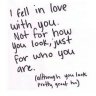 I fell in love
with you.
Not for how
you look, just
for who you
are.
(although you look
pretty great too)